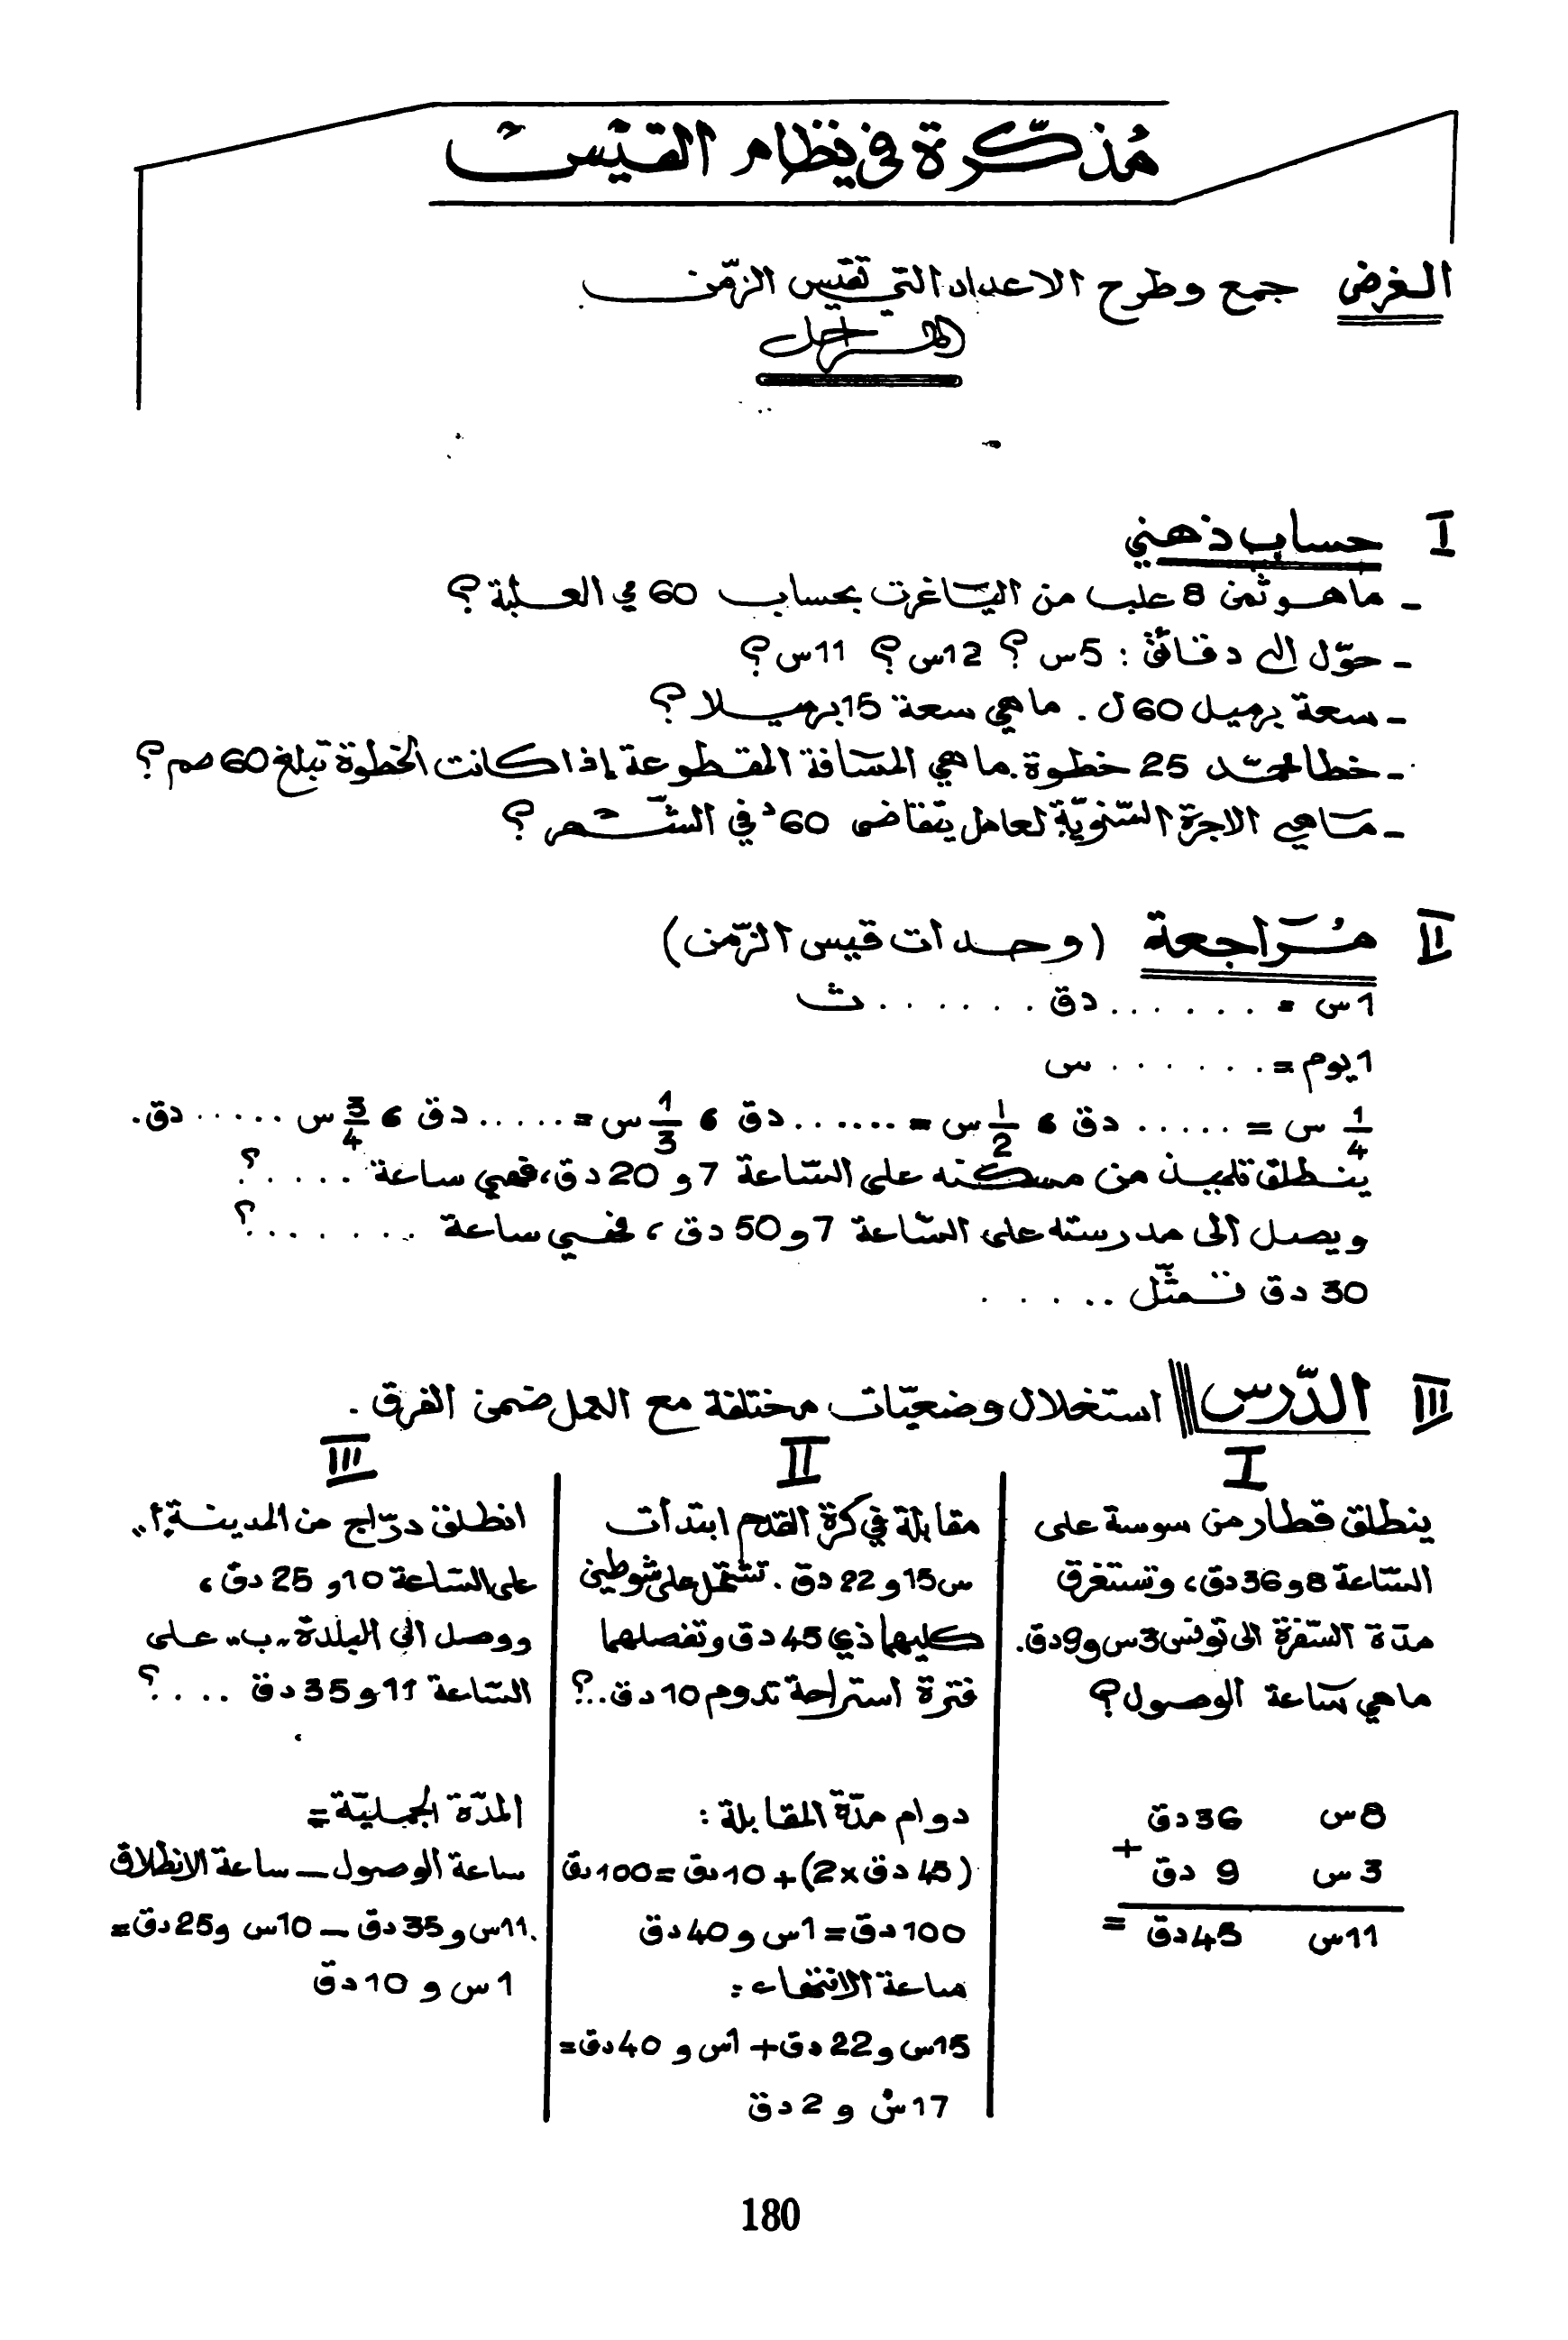 مُذكّرة في نظام القيْس
الغرض جمع وطرح الاعداد التي تقيس الزّمن
المراحل
I حساب ذهني
- ما هو ثمن 8 علب من الياغرت بحساب 60 مي العلبة؟
- حوّل الى دقائق : 5س ؟ 12س ؟ 11س ؟
- سعة برميل 60 ل . ما هي سعة 15 برميلا ؟
- خطا محمّد 25 خطوة. ما هي المسافة المقطوعة إذا كانت الخطوة تبلغ 60 صم ؟
- ما هي الاجرة السّنويّة لعامل يتقاضى 60د في الشّهر ؟
II مُراجعة (وحدات قيس الزّمن)
1س = ...... دق ...... ث
1 يوم = ...... س
1/4 س = ..... دق ، 1/2 س = ...... دق ، 1/3 س = ..... دق ، 3/4 س ..... دق.
ينطلق تلميذ من مسكنه على السّاعة 7 و 20 دق ، فهي ساعة ....؟
ويصل الى مدرسته على السّاعة 7 و 50 دق ، فهي ساعة ......؟
30 دق تمثّل .....
III الدّرس استغلال وضعيّات مختلفة مع العمل ضمن الفرق .
I
ينطلق قطار من سوسة على
السّاعة 8 و 36 دق ، وتستغرق
مدّة السّفرة الى تونس 3س و 9دق.
ما هي ساعة الوصول ؟
8س 36 دق
+
3 س 9 دق
11س 45 دق =
II
مقابلة في كرة القدم ابتدأت
س15 و 22 دق . تشتمل على شوطين
كليهما ذي 45 دق وتفصلهما
فترة استراحة تدوم 10 دق..؟
دوام مدّة المقابلة :
(45 دق x 2) + 10 دق = 100 دق
100 دق = 1س و 40 دق
ساعة الانتهاء :
15س و 22 دق + 1س و 40 دق =
17س و 2 دق
III
انطلق درّاج من المدينة "أ"
على السّاعة 10 و 25 دق ،
ووصل الى البلدة "ب" على
السّاعة 11 و 35 دق ....؟
المدّة الجمليّة =
ساعة الوصول – ساعة الانطلاق
11س و 35 دق – 10س و 25 دق =
1 س و 10 دق
180